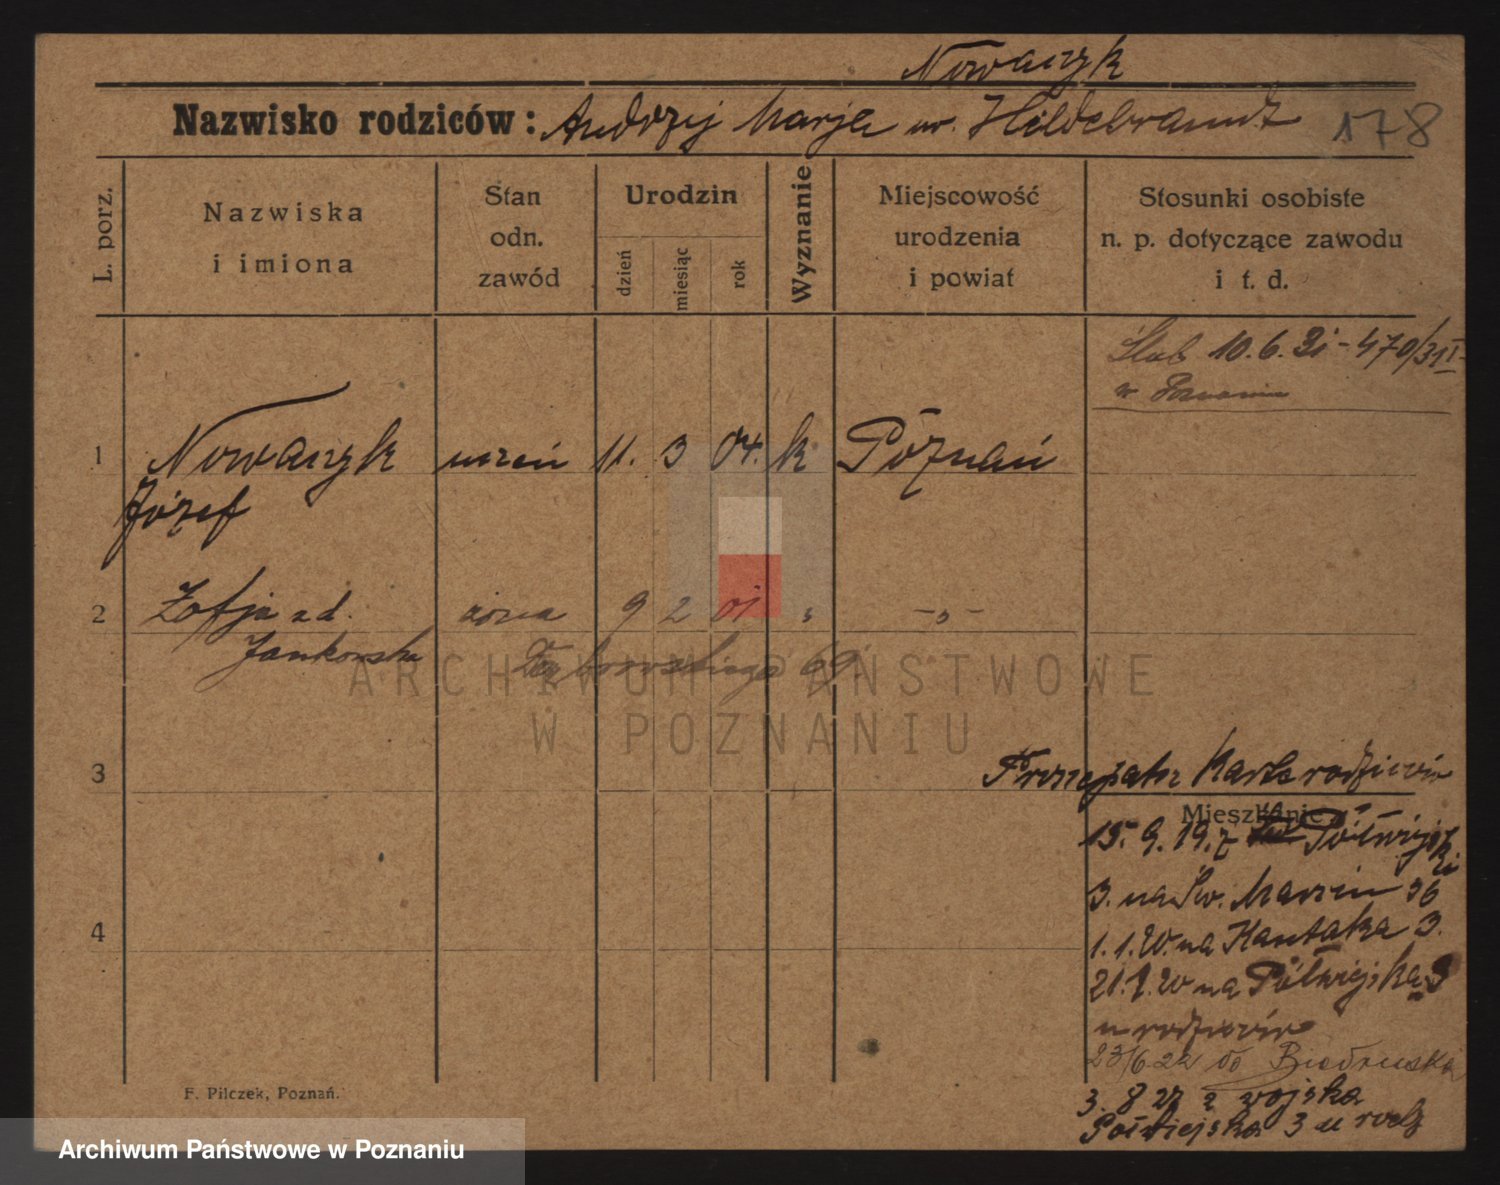 Nowaczyk
Nazwisko rodziców: Andrzej Marja ur. Hildebrandt 178
L. porz.
Nazwiska
i imiona
Stan
odn.
zawód
Urodzin
dzień
miesiąc
rok
Wyznanie
Miejscowość
urodzenia
i powiat
Stosunki osobiste
n. p. dotyczące zawodu
i t. d.
Ślub 10.6.31 - 470/31 I
w Poznaniu
1 Nowaczyk uczeń 11. 3 04. k Poznań
Józef
2 Zofja zd. żona 9 2 01 " -"-
Jankowska
Dąbrowskiego 69
ARCHIWUM PAŃSTWOWE
W POZNANIU
3 karta rodziców
Mieszkanie
15. 9. 19. z Półwiejski
3. na Św. Marcin 36
4 1.1.20. na Kantaka 3.
na Półwiejska 3
u rodziców
23/6.22 do Biedruska
3. 8 z wojska
Półwiejska 3 u rodz
F. Pilczek, Poznań.
Archiwum Państwowe w Poznaniu